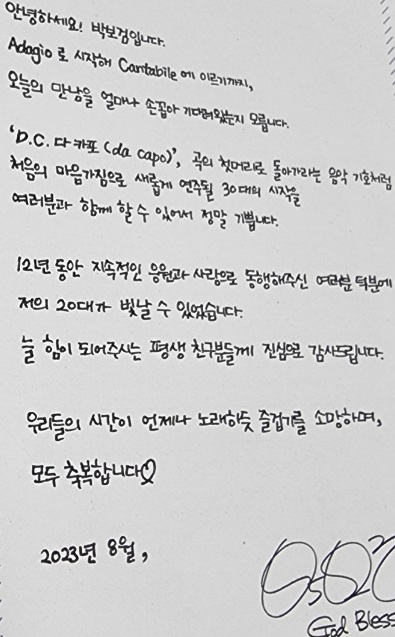 안녕하세요! 박보검입니다.
Adagio 로 시작해 Cantabile 에 이르기까지,
오늘의 만남을 얼마나 손꼽아 기다려왔는지 모릅니다.
'D.C. 다 카포 (da capo)', 곡의 첫머리로 돌아가라는 음악 기호처럼
처음의 마음가짐으로 새롭게 연주될 30대의 시작을
여러분과 함께 할 수 있어서 정말 기쁩니다.
12년 동안 지속적인 응원과 사랑으로 동행해주신 여러분 덕분에
저의 20대가 빛날 수 있었습니다.
늘 힘이 되어주시는 평생 친구분들께 진심으로 감사드립니다.
우리들의 시간이 언제나 노래하듯 즐겁기를 소망하며,
모두 축복합니다♡
2023년 8월,
God Bless